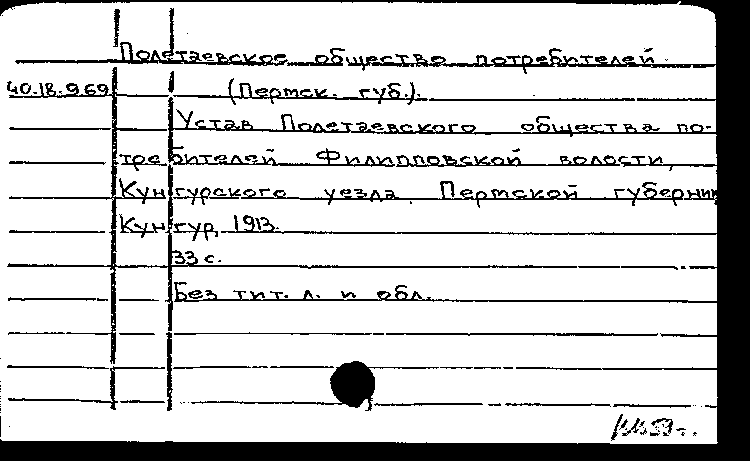 Полетаевское общество потребителей
40.18.969
(Пермск. губ.).
Устав Полетаевского общества по-
требителей Филипповской волости,
Кунгурского уезда, Пермской губернии
Кунгур, 1913.
33 с.
Без тит. л. и обл.